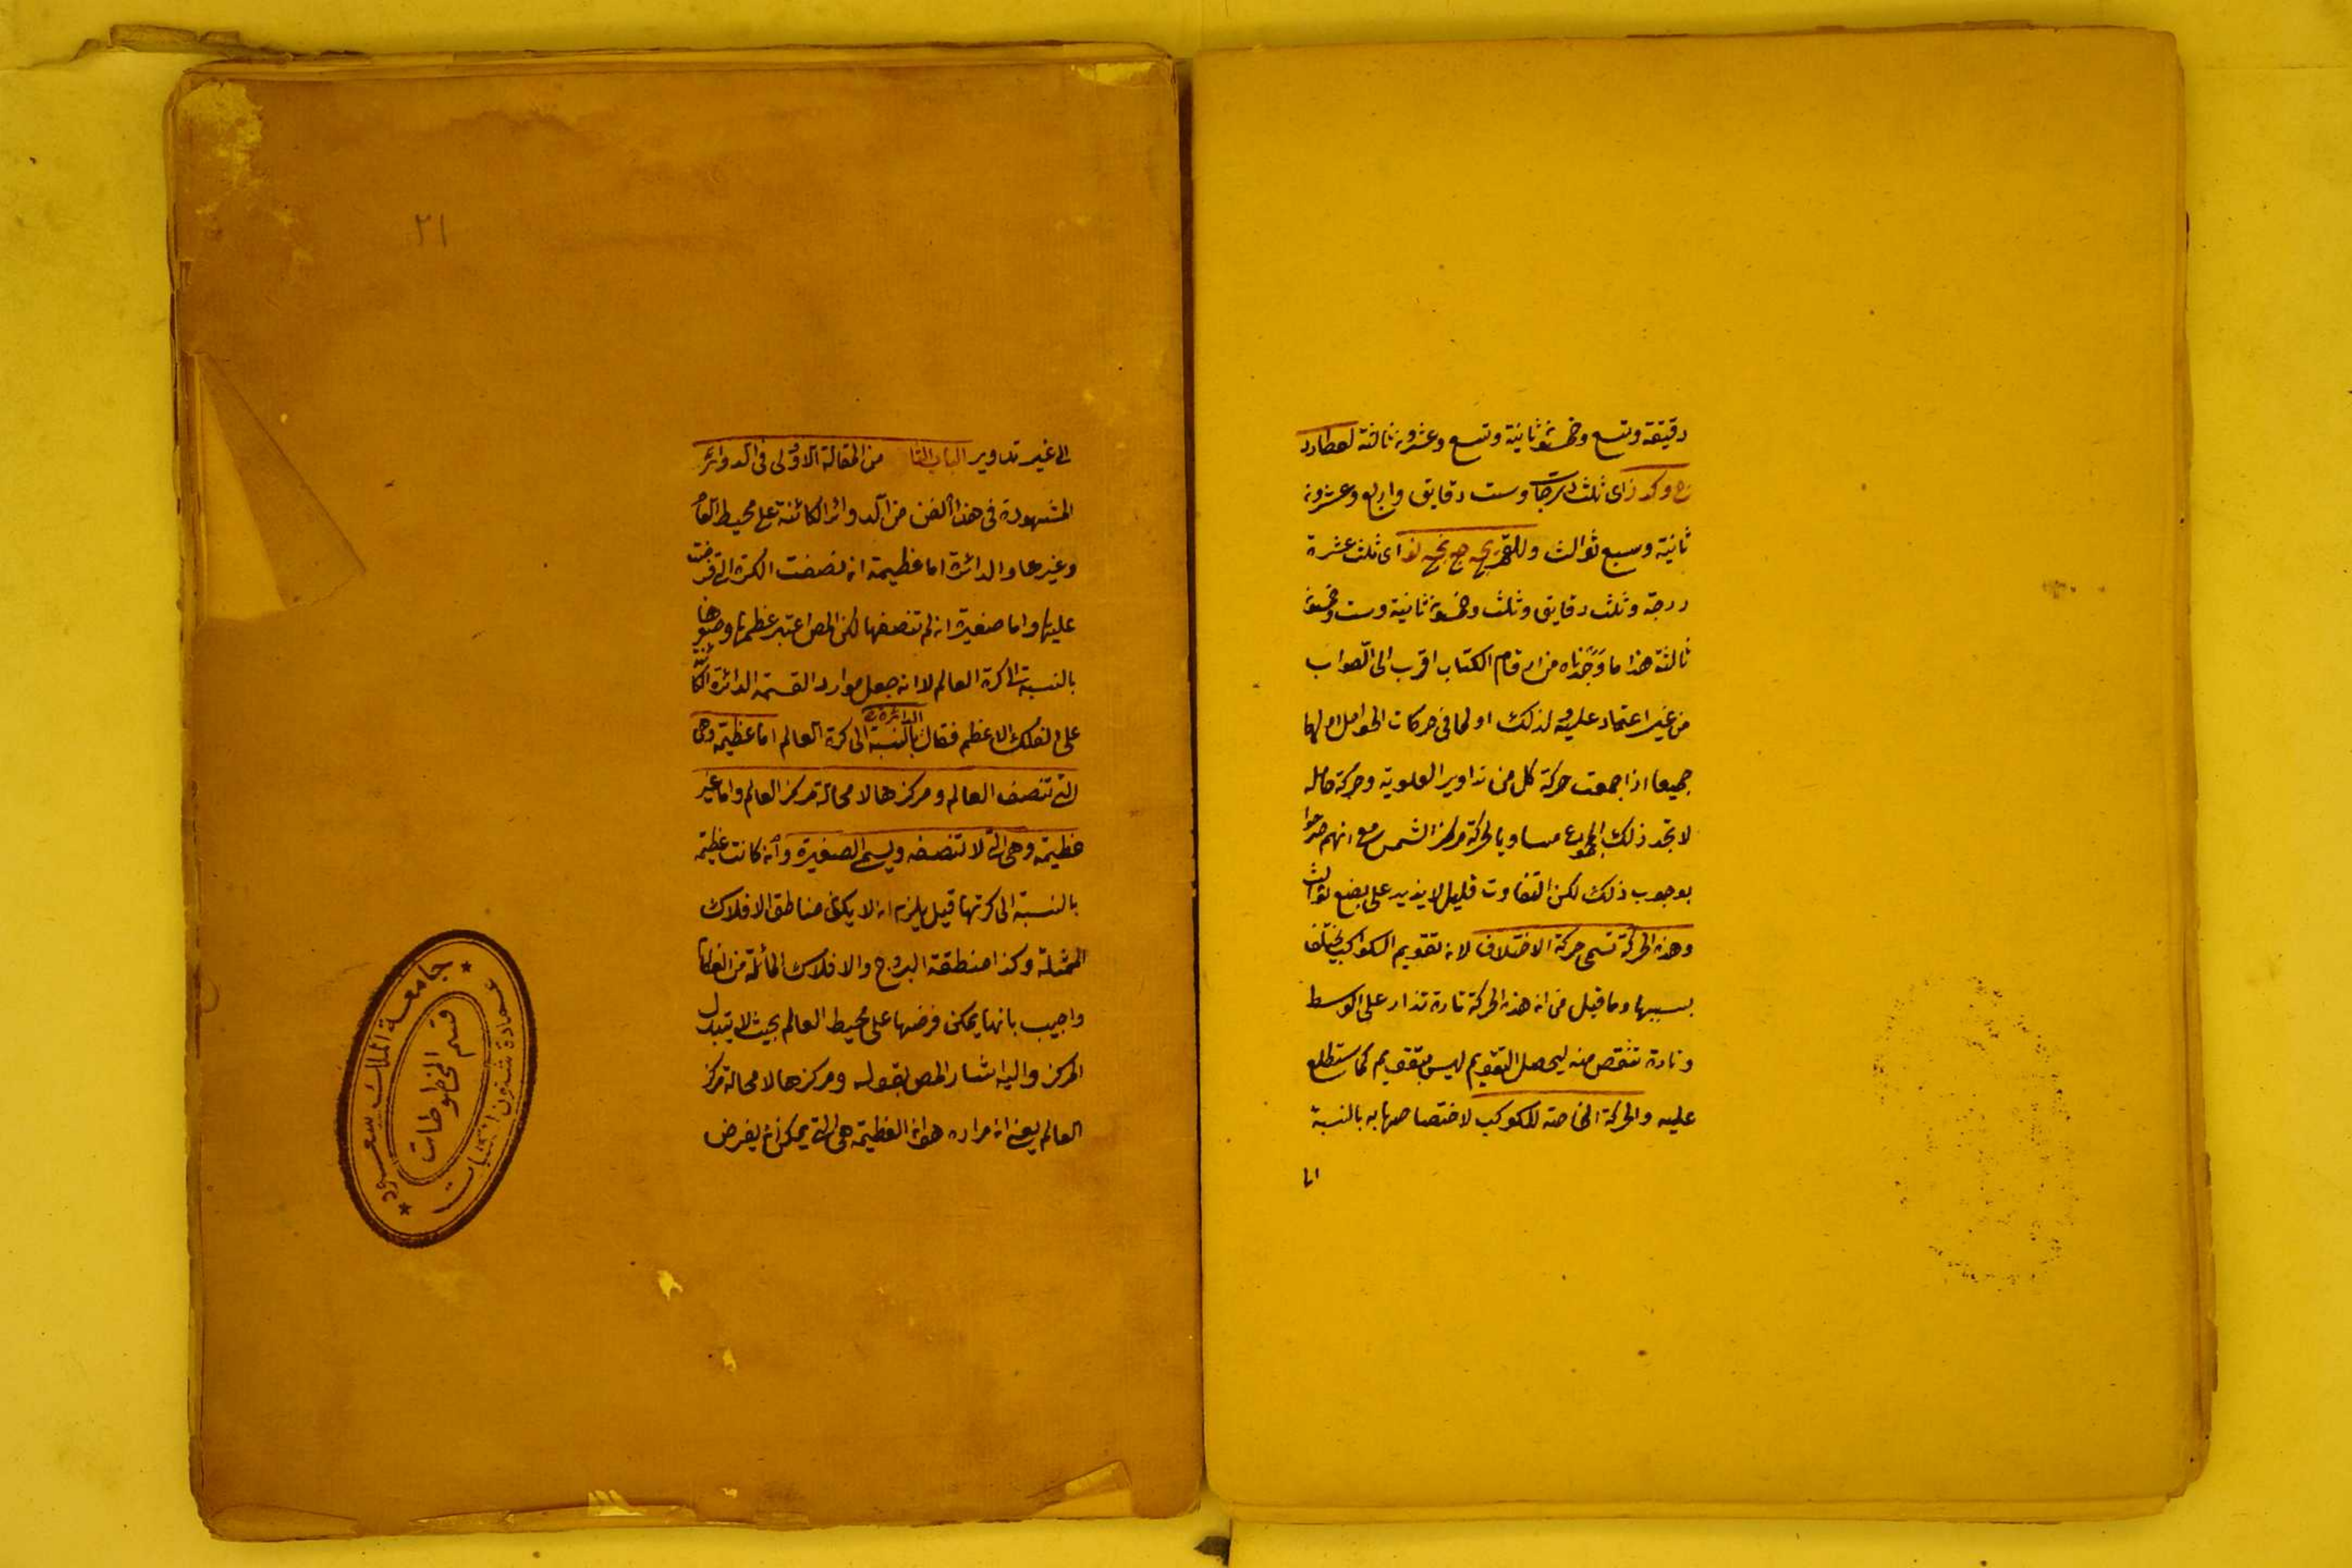 دقيقة وتسع وخمسون ثانية وتسع وعشرون ثالثة لعطارد
ج و كد ز اى ثلث درجات وست دقايق واربع وعشرون
ثانية وسبع ثوالث وللقمر يج ج نج نو اى ثلث عشرة
درجة وثلث دقايق وثلث وخمسون ثانية وست وخمسون
ثالثة هذا ما وجدناه من ارقام الكتاب اقرب الى الصواب
من غير اعتماد عليه لذلك او لما فى حركات الحوامل
جميعا اذا جمعت حركة كل من تداوير العلوية وحركة حامله
لا تجد ذلك المجموع مساويا لحركة مركز الشمس مع انهم صرحوا
بوجوب ذلك لكن التفاوت قليل لا يزيد على بضع ثوالث
وهذه الحركة تسمى حركة الاختلاف لان تقويم الكواكب يختلف
بسببها وما قيل من ان هذه الحركة تارة تزاد على الوسط
وتارة تنقص منه ليحصل التقويم ليس بتقويم كما ستطلع
عليه والحركة الخاصة للكوكب لاختصاصها به بالنسبة
٢١
الى غير تداوير الباب من المقالة الاولى فى الدوائر
المشهورة فى هذا الفن من الدوائر الكائنة على محيط العالم
وغيرها والدائرة اما عظيمة ان نصفت الكرة التى فرضت
عليها واما صغيرة ان لم تنصفها لكن المص اعتبر عظمها وصغرها
بالنسبة الى كرة العالم لانه جعل موارد القسمة الدائرة الكائنة
على الفلك الاعظم فقال الدائرة بالنسبة الى كرة العالم اما عظيمة وهى
التى تنصف العالم ومركزها لا محالة مركز العالم واما غير
عظيمة وهى التى لا تنصفه ويسمى الصغيرة وان كانت عظيمة
بالنسبة الى كرتها قيل يلزم ان لا يكون مناطق الافلاك
الممثلة وكذا منطقة البروج والافلاك المائلة من العظام
واجيب بانها يمكن فرضها على محيط العالم بحيث لا يتبدل
المركز واليه اشار المص بقوله ومركزها لا محالة مركز
العالم يعنى ان مراده هو ان العظيمة هى التى يمكن ان يفرض
جامعة الملك سعود
قسم المخطوطات
عمادة شئون المكتبات